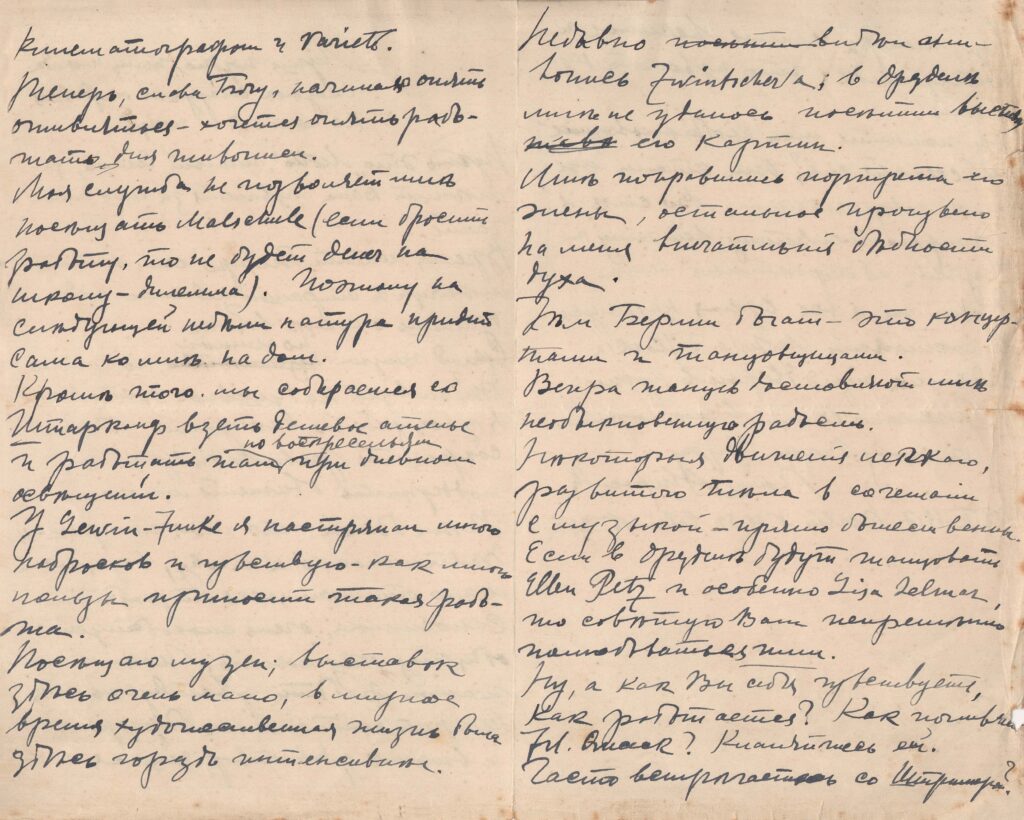 кинематографом и Varieté.
Теперь, слава Богу, начинаю опять
оживляться – хочется опять рабо-
тать для живописи.
Моя служба не позволяет мнѣ
посещать Malschule (если бросить
работу, то не будет денег на
школу – дилемма). Поэтому на
слѣдующей недѣли натура придет
сама ко мнѣ на дом.
Кромѣ того мы собираемся со
взять дешевое ателье
и работать там по воскресеньям при дневном
освѣщеніи.
У Lewin-Funke я настряпал много
набросков и чувствую – как много
пользы приносит такая рабо-
та.
Посещаю музеи; выставок
здѣсь очень мало, в мирное
время художественная жизнь была
здѣсь гораздо интенсивнѣе.
Недавно видѣл
Zwintscher'a; в Дрезденѣ
мнѣ не удалось посѣтить выставку
его картин.
Мнѣ понравились портреты его
жены, остальное произвело
на меня впечатлѣнія бѣдности
духа.
Чѣм Берлин богат – это концер-
тами и танцовщицами.
Вечера танцев доставляют мнѣ
необыкновенную радость.
Нѣкоторыя движенія легкаго,
развитого тѣла в сочетаніи
с музыкой – прямо божественны.
Если в Дрезденѣ будут танцовать
Ellen Petz и особенно
то совѣтую Вам непремѣнно
полюбоваться ими.
Ну, а как Вы себя чувствуете,
Как работается? Как поживает
Frl. Quack? Кланяйтесь ей.
Часто встрѣчаетесь со